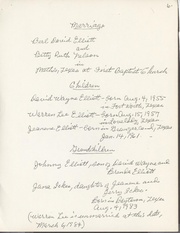 Marriage
David Elliott
and
Betty Ruth
in
Texas at First Baptist Church
Children
David Wayne Elliott - Born Aug. 4, 1955
in Fort Worth, Texas
Warren Lee Elliott - Born Aug. 15, 1957
in Texas
Jeanne Elliott - Born in Texas
Jan. 14, 1961
Grandchildren
Johnny Elliott, son of David Wayne and
Elliott
Jana daughter of Jeanne and
Jerry
Born in Baytown, Texas
Aug. 4, 1983
(Warren Lee is unmarried at this date,
March 6, 1984)